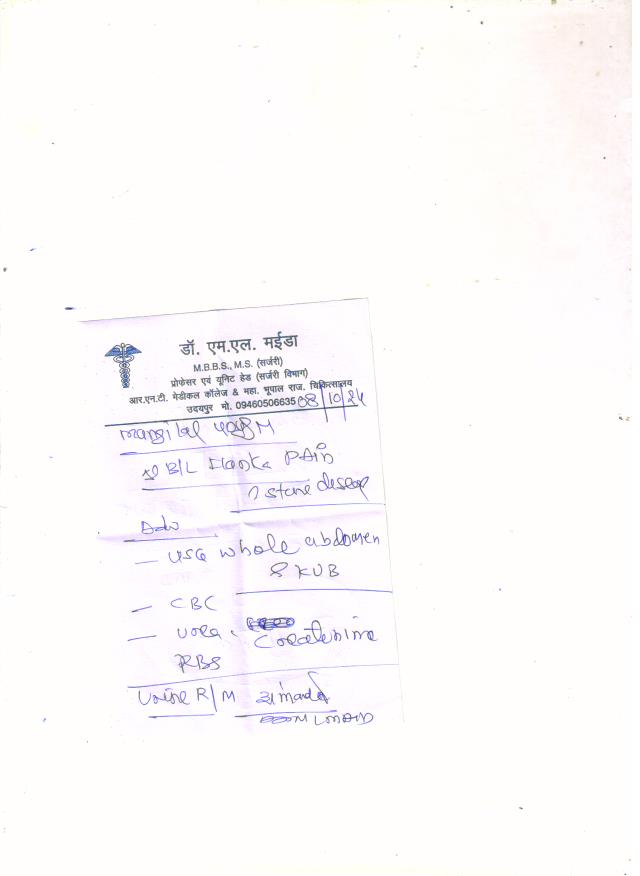 डॉ. एम.एल. मईडा
M.B.B.S., M.S. (सर्जरी)
प्रोफेसर एवं यूनिट हेड (सर्जरी विभाग)
आर.एन.टी. मेडीकल कॉलेज & महा. भूपाल राज. चिकित्सालय
उदयपुर मो. 09460506635 08/10/24
Mangilal
B/L Flanks Pain
? stone disease
Adv
— USG whole abdomen
& KUB
— CBC
— Urea, Creatinine
RBS
Urine R/M